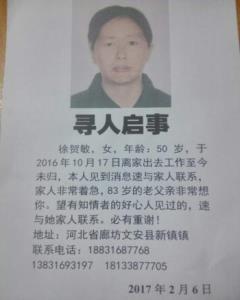 寻人启事
徐贺敏，女，年龄：50 岁，于
2016年10月17日离家出去工作至今
未归，本人见到消息速与家人联系，
家人非常着急，83 岁的老父亲非常想
你。望有知情者的好心人见过的，速
与她家人联系。必有重谢！
地址：河北省廊坊文安县新镇镇
联系电话：18831687768
13831693197 18133877705
2017 年 2 月 6 日